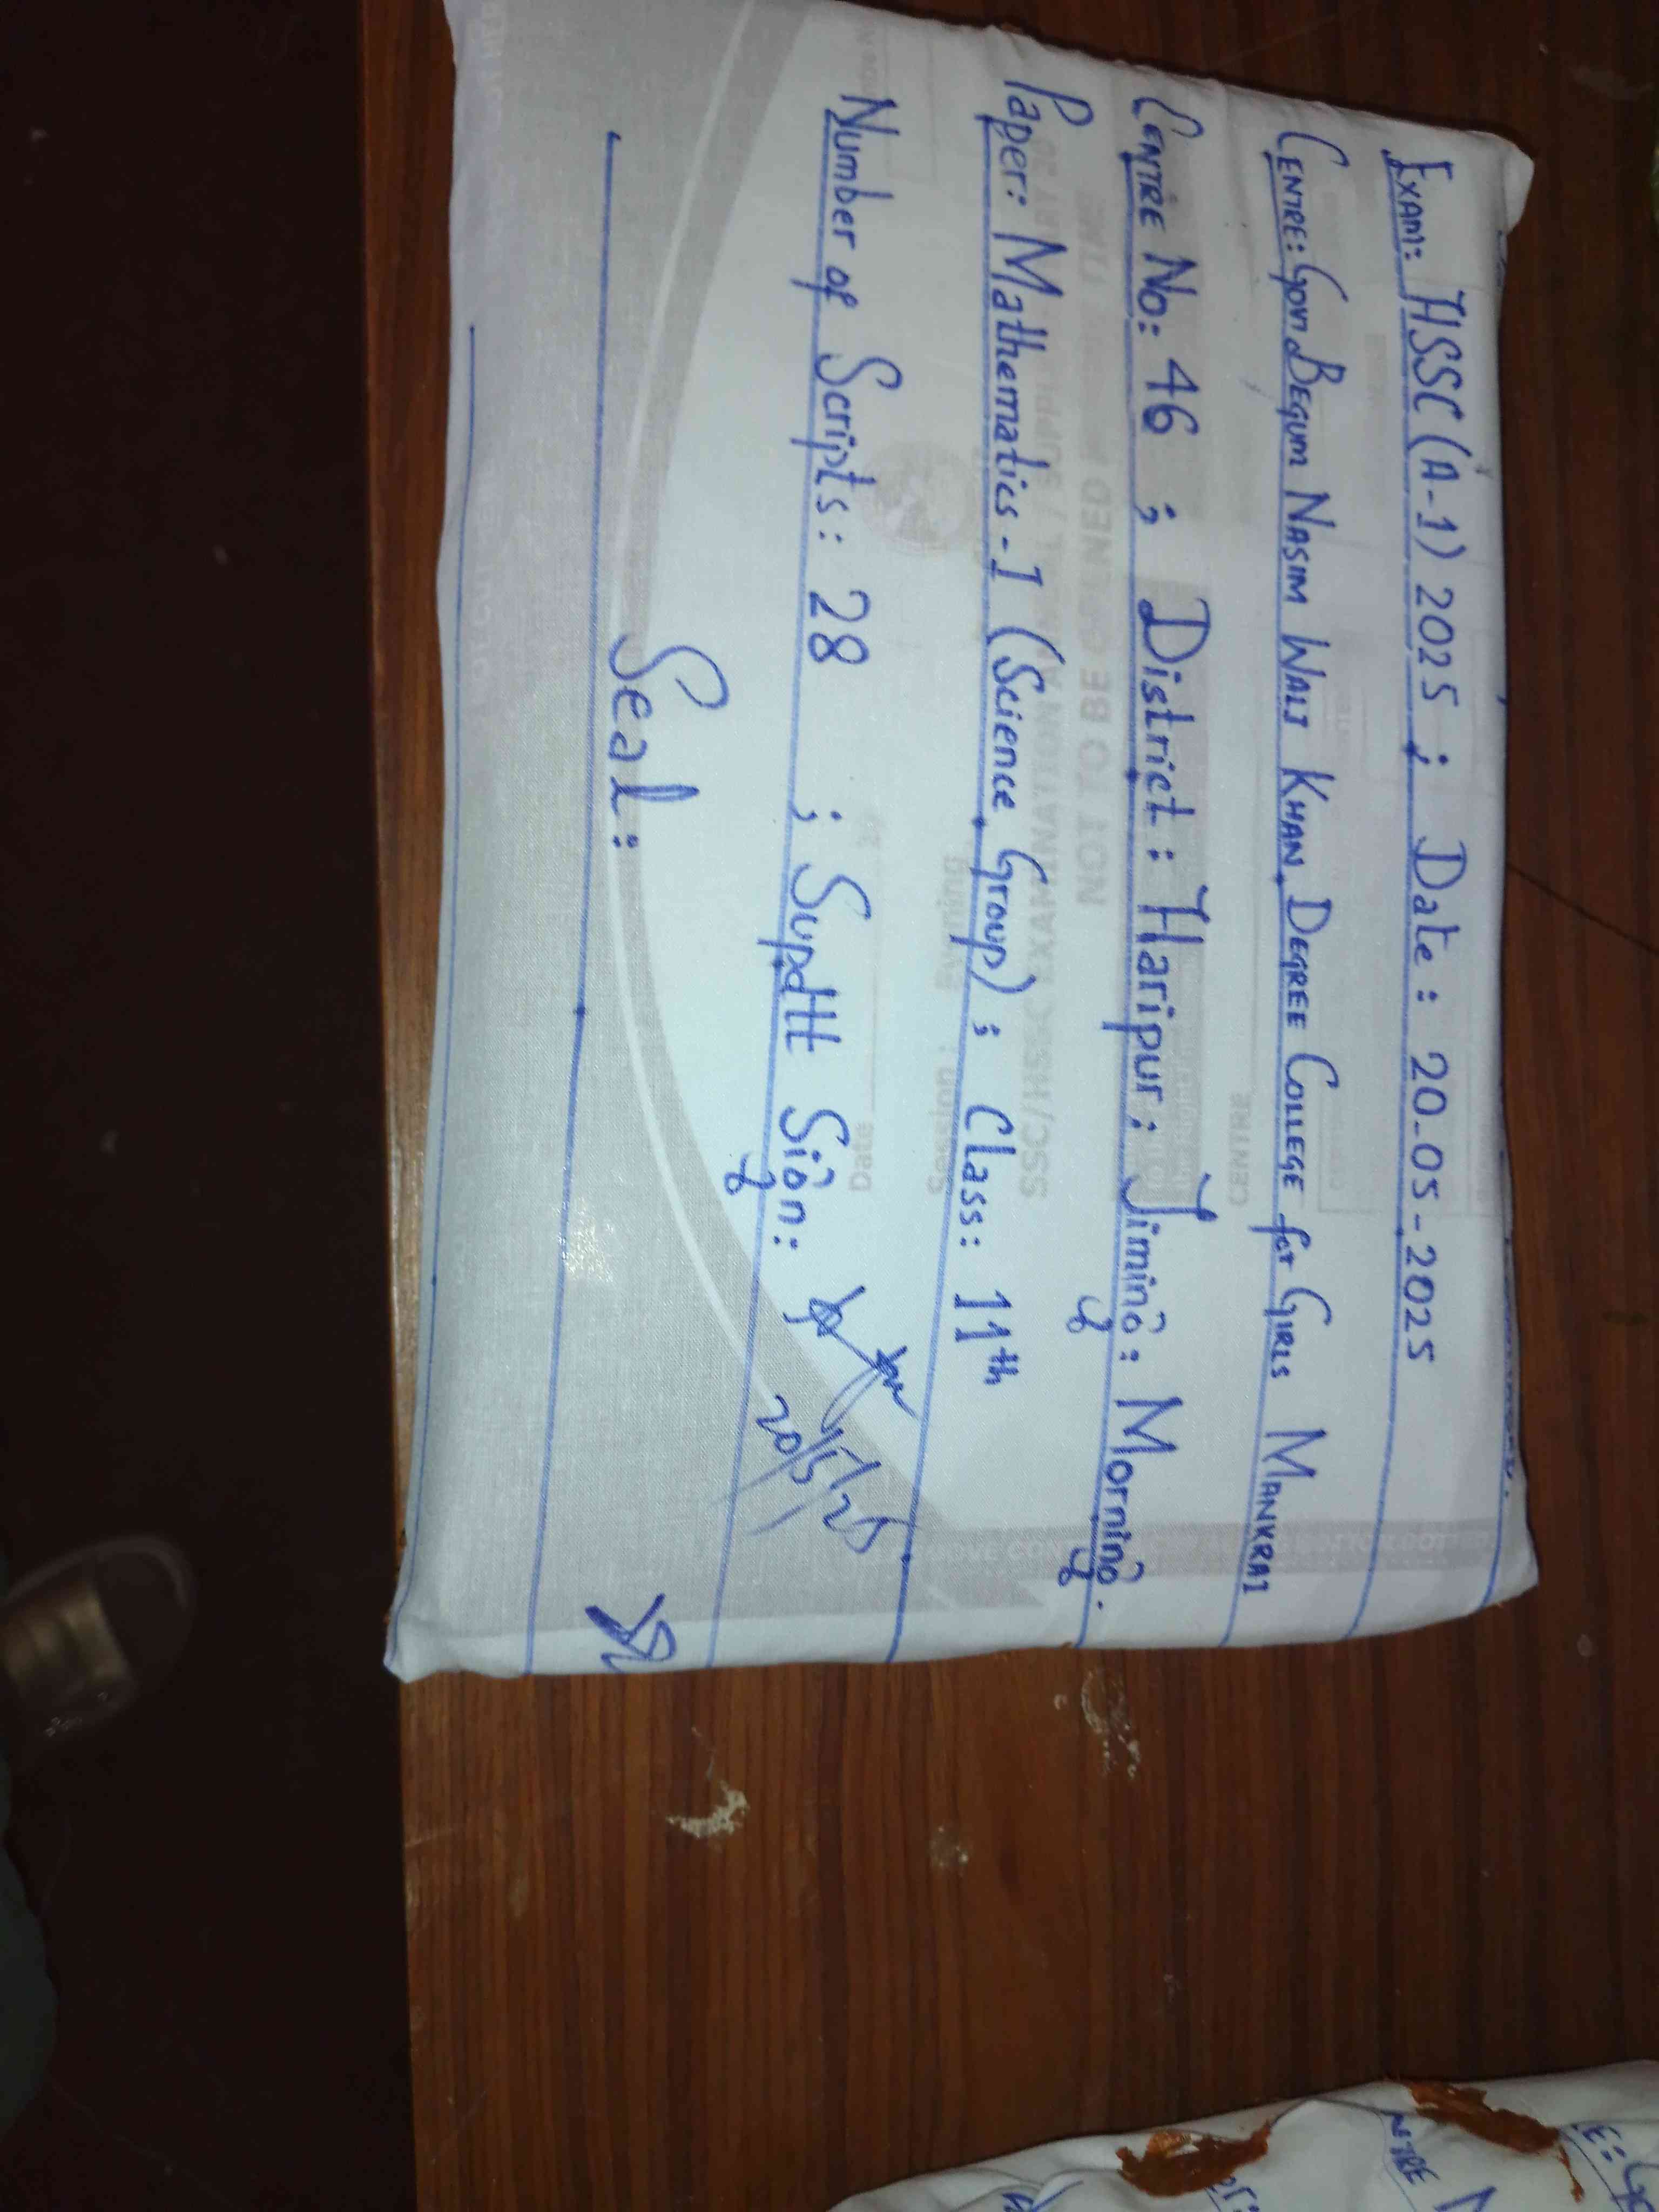 Exam: HSSC (A-1) 2025 ; Date : 20-05-2025
CENTRE: Govt BEGUM NASIM WALI KHAN DEGREE COLLEGE for GIRLS MANKRAI
CENTRE No: 46 ; District : Haripur ; Timing : Morning.
Paper: Mathematics - I (Science Group) ; Class: 11th
Number of Scripts : 28 ; Supdtt Sign:
20/5/25
Seal :
NOT TO BE OPENED
SSC/HSSC EXAMINATION ANNUAL / SUPP
Session : Evening
Date 20
CENTRE
NTRE